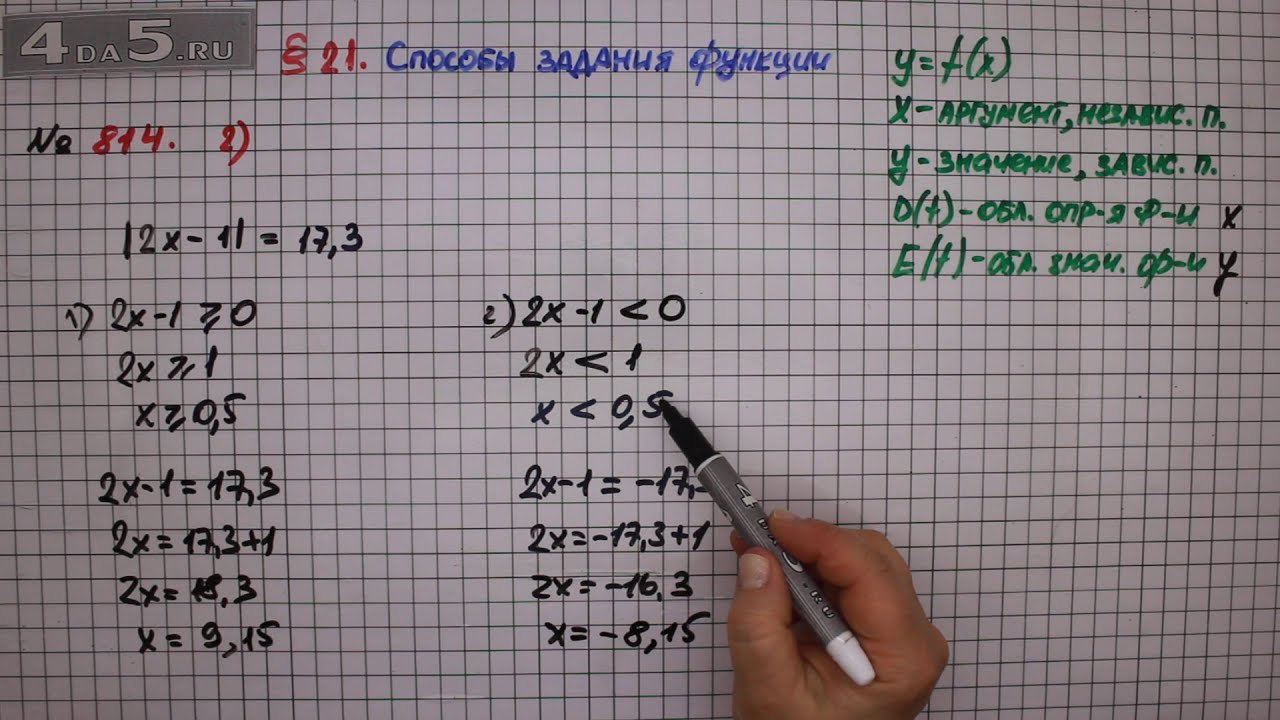 4DA5.RU
§ 21. Способы задания функции
№ 814. 2)
|2x-1| = 17,3
1) 2x-1 ⩾ 0
2x ⩾ 1
x ⩾ 0,5
2x-1 = 17,3
2x = 17,3+1
2x = 18,3
x = 9,15
2) 2x-1 < 0
2x < 1
x < 0,5
2x-1 = -17,
2x = -17,3+1
2x = -16,3
x = -8,15
y = f(x)
x - аргумент, независ. п.
y - значение, завис. п.
D(f) - обл. опр-я ф-и x
E(f) - обл. знач. ф-и y